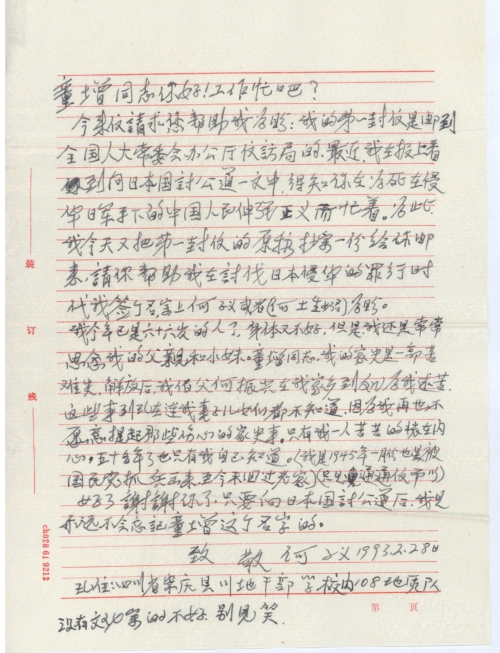 童增同志你好!工作忙吧?
今来信請求您帮助我为盼:我的第一封信是邮到
全国人大常委会办公厅信訪局的,最近我在报上看
到向日本国討公道一文中,得知你在为死在侵
华日军手下的中国人民伸张正义而忙着。为此,
我今天又把第一封信的原执抄来一份给你邮
来,請你帮助我在討伐日本侵华的罪行时
代我签个名字上何 义或者(何 土生 )为盼。
我今年已是六十六岁的人了,身体又不好,但是我还是常常
思念我的父親和小妹。童增同志,我的家史是一部苦
难史,解放后,我伯父何振兴在我家 到处为我述苦,
这些事到现在连我妻子儿女们都不知道,因为我再也不
愿意提起那些伤心的家史事。只有我一人苦苦的怀在内
心。五十多年了也只有我自己知道。(我是1945年一月份也是被
国民党抓兵出来至今未回过老家)(只是通通信而以)
好了謝謝你了,只要向日本国討公道后,我是
永远不会忘記童增这个名字的。
致 敬 何 义 1993.2.28日
现住:四川省崇庆县川地干部学校内108地 队
没有文化写的不好,别見笑.
装
订
线
ch028 61 9212
第 页